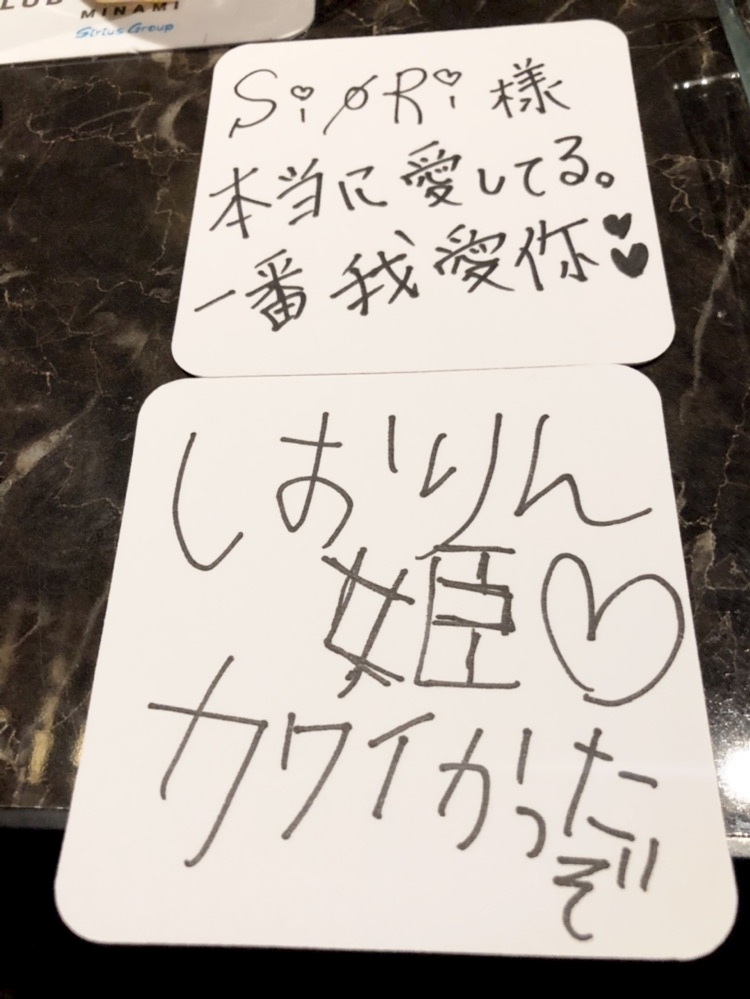 LUB
MINAMI
Sirius Group
SiØRi様
本当に愛してる。
一番我爱你
しおりん
姫
カワイかった
ぞ